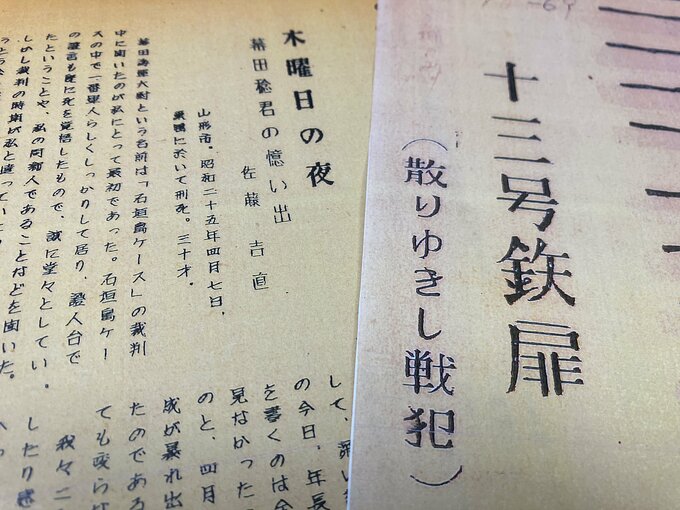 十三号鉄扉
（散りゆきし戦犯）
木曜日の夜
幕田稔君の憶い出
佐藤吉直
山形市。昭和二十五年四月七日、
巣鴨に於いて刑死。三十才。
幕田海軍大尉という名前は「石垣島ケース」の裁判
中に聞いたのが私にとって最初であった。石垣島ケー
スの中で一番軍人らしくしっかりして居り、證人台で
の證言も既に死を覚悟したもので、誠に堂々としてい
たということや、私の同郷人であることなどを聞いた。
しかし裁判の時期が私と違っていた
して、深い
の今日、年長
を書くのは
見なかった
のと、四月
成が暴れ出
たのである
ても変らな
我々二
したり